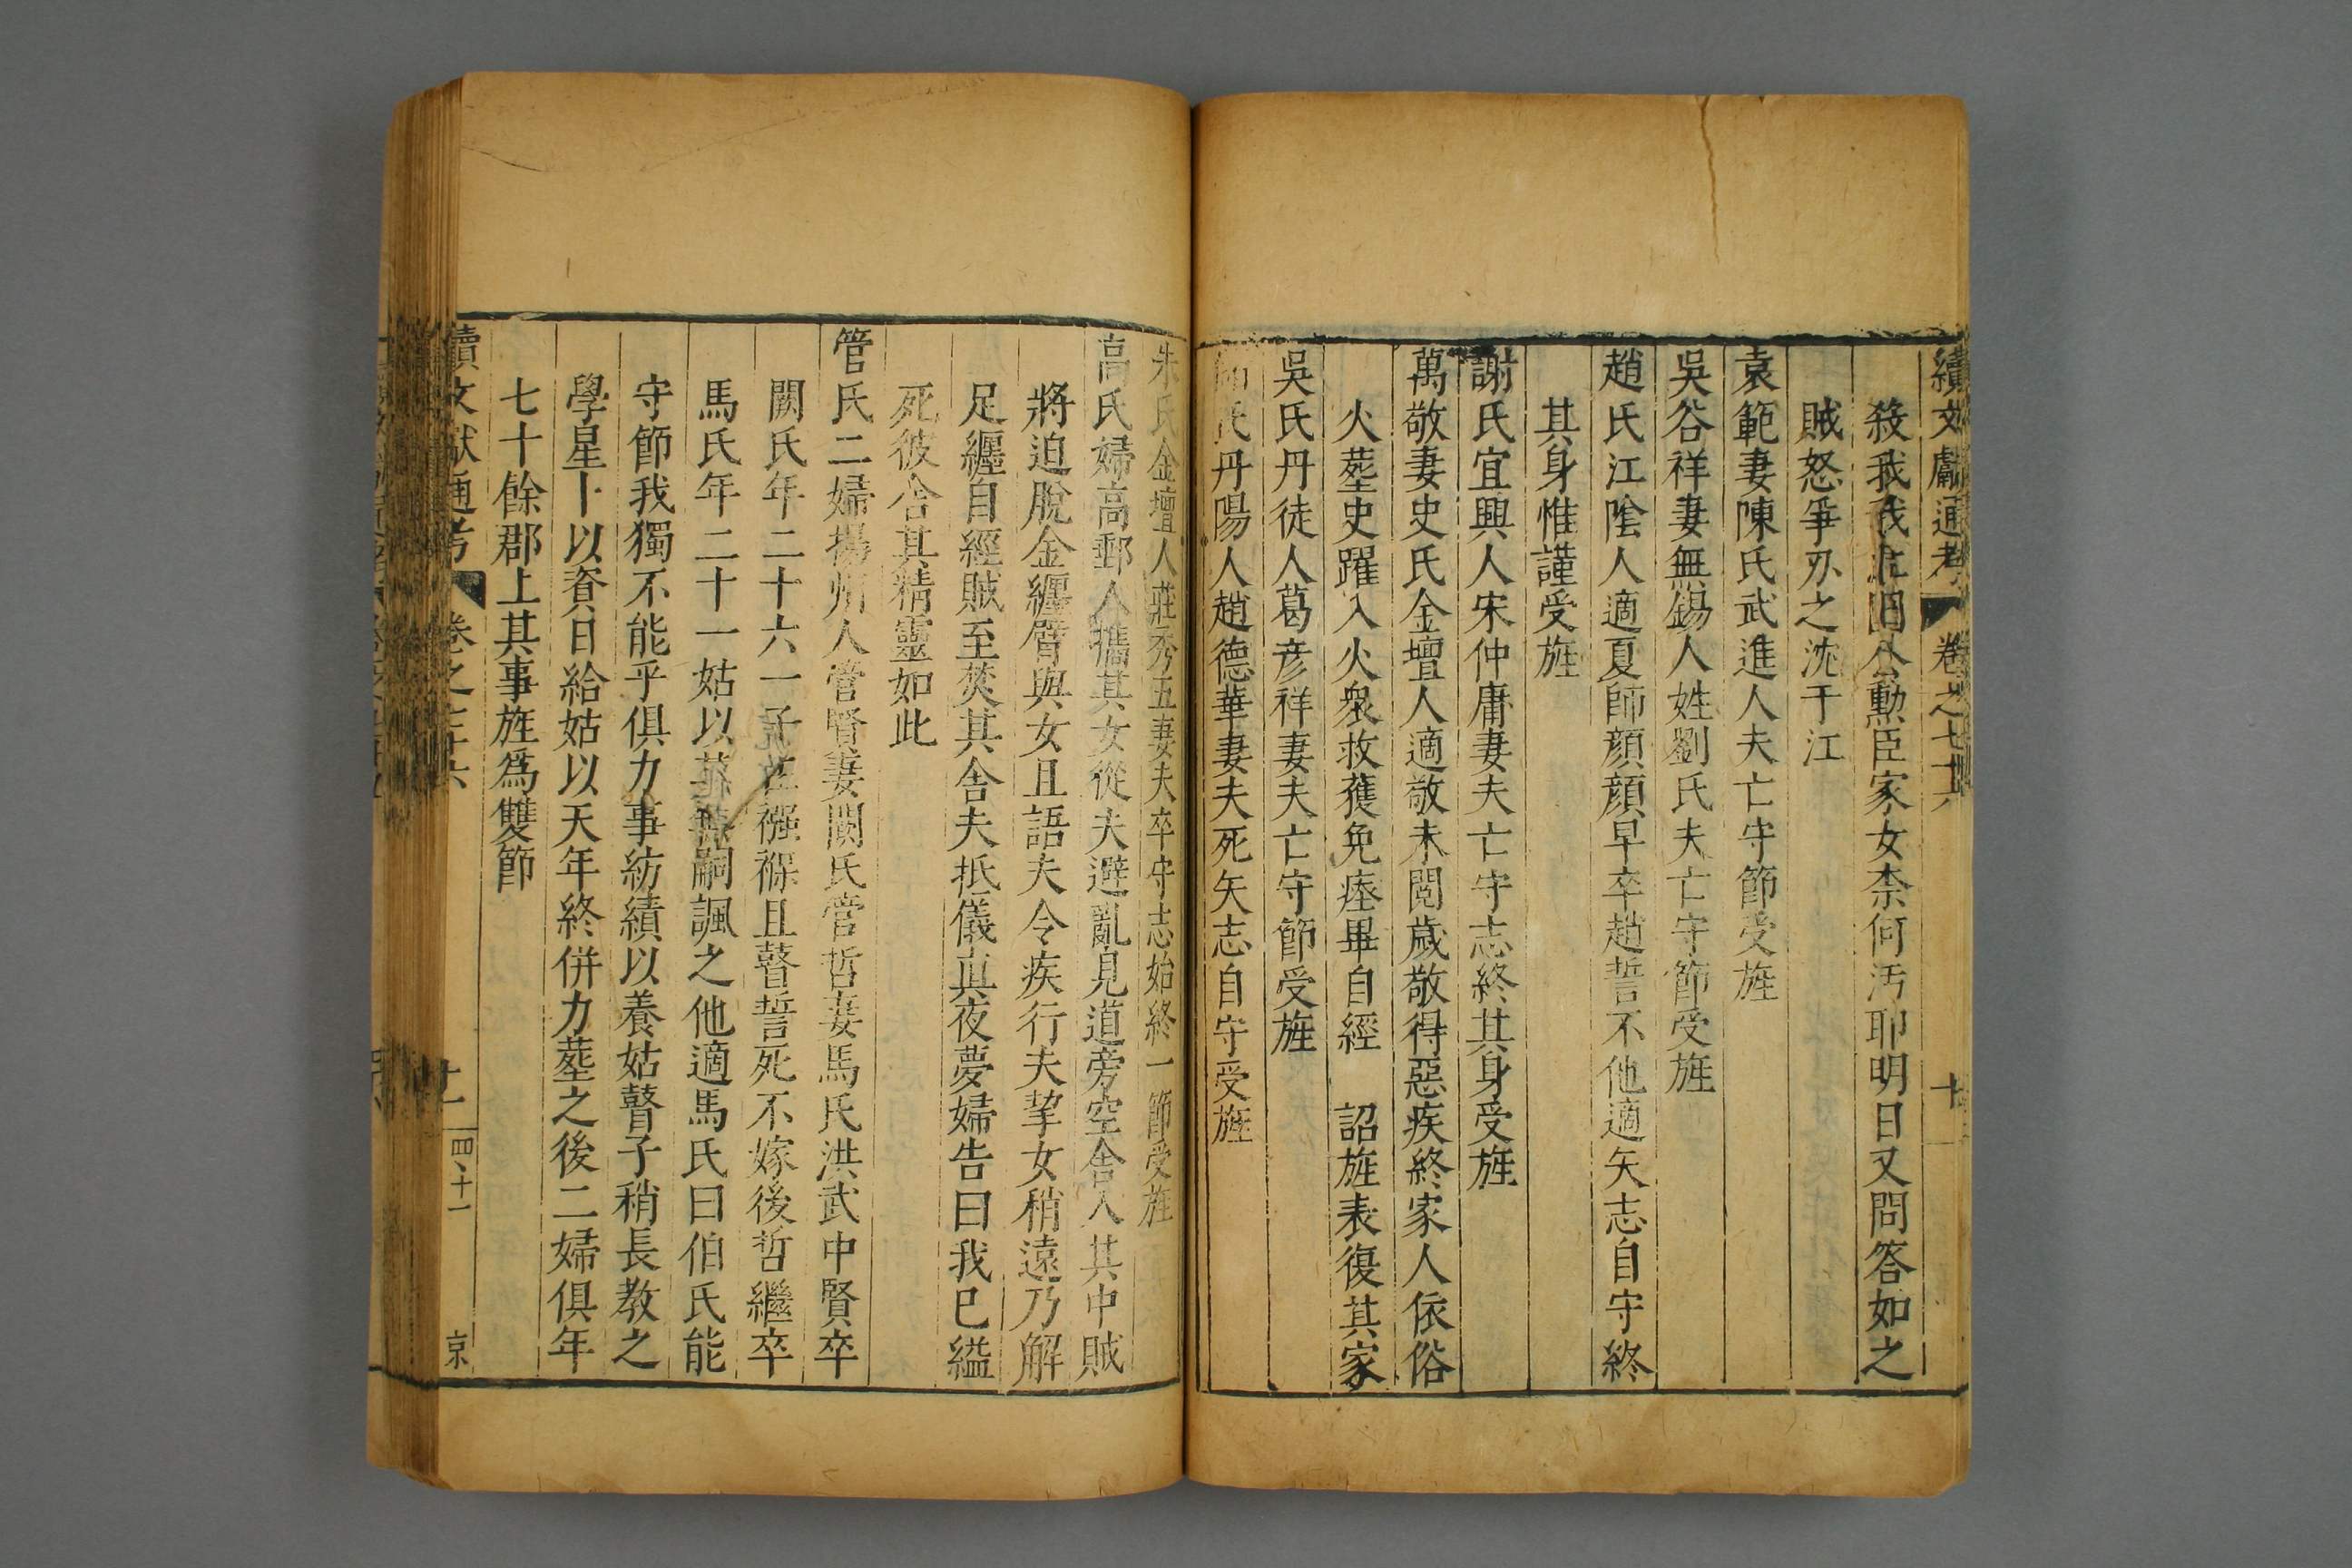 續文獻通考 卷之七十六 十
殺我我在旧公勳臣家女柰何汚耶明日又問答如之
賊怒爭刃之沈于江
袁範妻陳氏武進人夫亡守節受旌
吳谷祥妻無錫人姓劉氏夫亡守節受旌
趙氏江陰人適夏師顔顔早卒趙誓不他適矢志自守終
其身惟謹受旌
謝氏宜興人宋仲庸妻夫亡守志終其身受旌
萬敬妻史氏金壇人適敬未閱歲敬得惡疾終家人依俗
火塟史躍入火衆救獲免瘞畢自經 詔旌表復其家
吳氏丹徒人葛彦祥妻夫亡守節受旌
氏丹陽人趙德華妻夫死矢志自守受旌
朱氏金壇人莊秀五妻夫卒守志始終一節受旌
高氏婦高郵人攜其女從夫避亂見道旁空舍入其中賊
將迫脫金纏臂與女且語夫令疾行夫挈女稍遠乃解
足纏自經賊至焚其舍夫抵儀眞夜夢婦告曰我已縊
死彼舍其精靈如此
管氏二婦揚州人管賢妻闕氏管哲妻馬氏洪武中賢卒
闕氏年二十六一子在襁褓且瞽誓死不嫁後哲繼卒
馬氏年二十一姑以其無嗣諷之他適馬氏曰伯氏能
守節我獨不能乎俱力事紡績以養姑瞽子稍長教之
學星卜以資日給姑以天年終併力塟之後二婦俱年
七十餘郡上其事旌爲雙節
續文獻通考 卷之七十六 十一 四十一 京